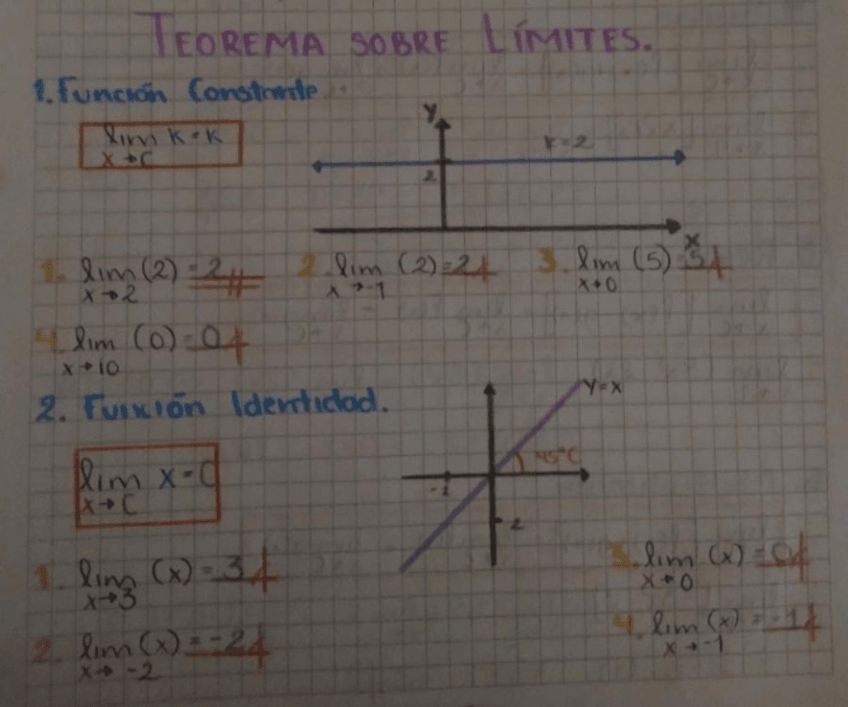 TEOREMA SOBRE LÍMITES.
1. Función Constante
lim K = K
x→C
Y
K=2
2
X
1. lim (2) = 2
x→2
2. lim (2) = 2
x→-1
3. lim (5) = 5
x→0
4. lim (0) = 0
x→10
2. Función Identidad.
lim x = C
x→C
Y=X
45°C
1. lim (x) = 3
x→3
2. lim (x) = -2
x→-2
3. lim (x) = 0
x→0
4. lim (x) = -1
x→-1